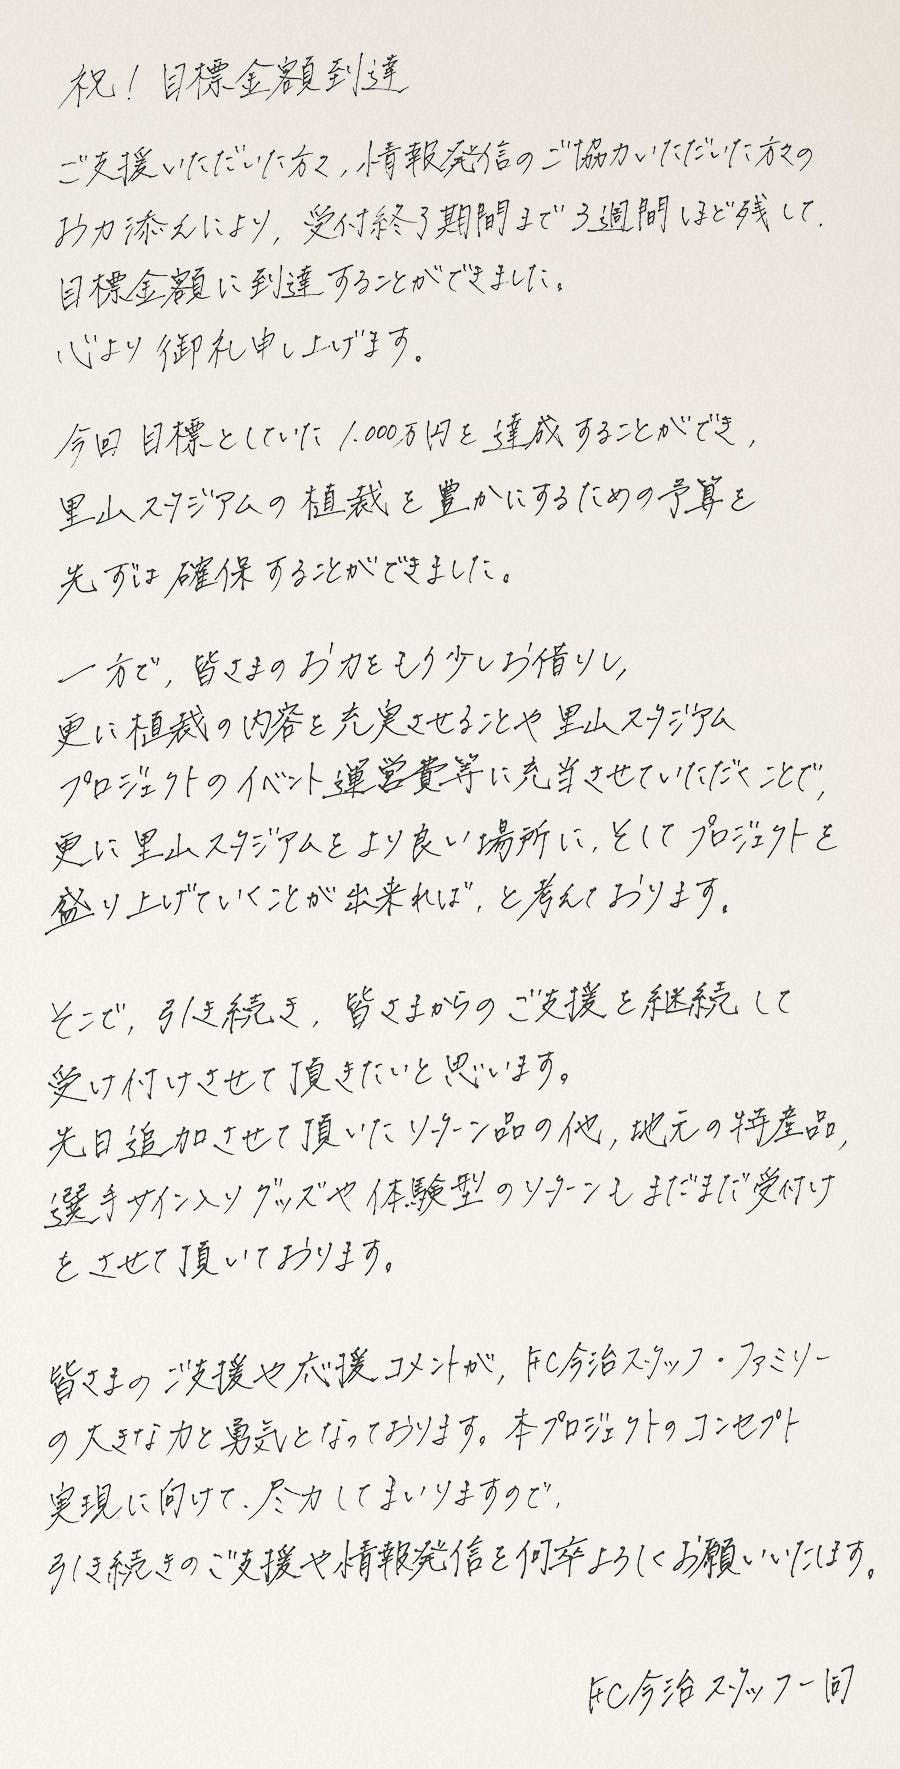 祝！目標金額到達
ご支援いただいた方々、情報発信のご協力いただいた方々の
お力添えにより、受付終了期間まで3週間ほど残して、
目標金額に到達することができました。
心より御礼申し上げます。
今回目標としていた1,000万円を達成することができ、
里山スタジアムの植栽を豊かにするための予算を
先ずは確保することができました。
一方で、皆さまのお力をもう少しお借りし、
更に植栽の内容を充実させることや里山スタジアム
プロジェクトのイベント運営費等に充当させていただくことで、
更に里山スタジアムをより良い場所に、そしてプロジェクトを
盛り上げていくことが出来れば、と考えております。
そこで、引き続き、皆さまからのご支援を継続して
受け付けさせて頂きたいと思います。
先日追加させて頂いたリターン品の他、地元の特産品、
選手サイン入りグッズや体験型のリターンもまだまだ受付け
をさせて頂いております。
皆さまのご支援や応援コメントが、FC今治スタッフ・ファミリー
の大きな力と勇気となっております。本プロジェクトのコンセプト
実現に向けて、尽力してまいりますので、
引き続きのご支援や情報発信を何卒よろしくお願いいたします。
FC今治スタッフ一同